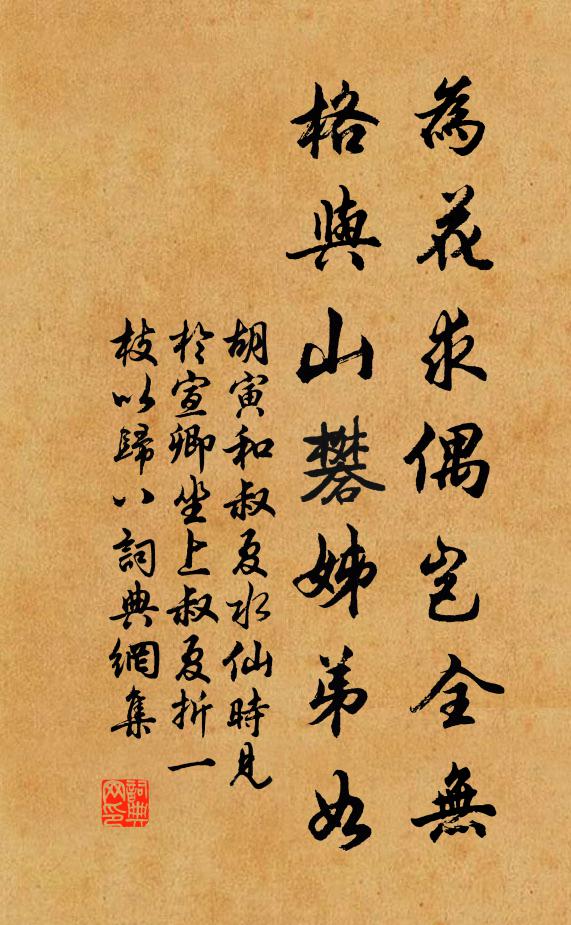 為花求偶豈全無
格與山礬姊弟如
胡寅和叔夏水仙時見
於宣卿坐上叔夏折一
枝以歸八詞典網集
詞典网印